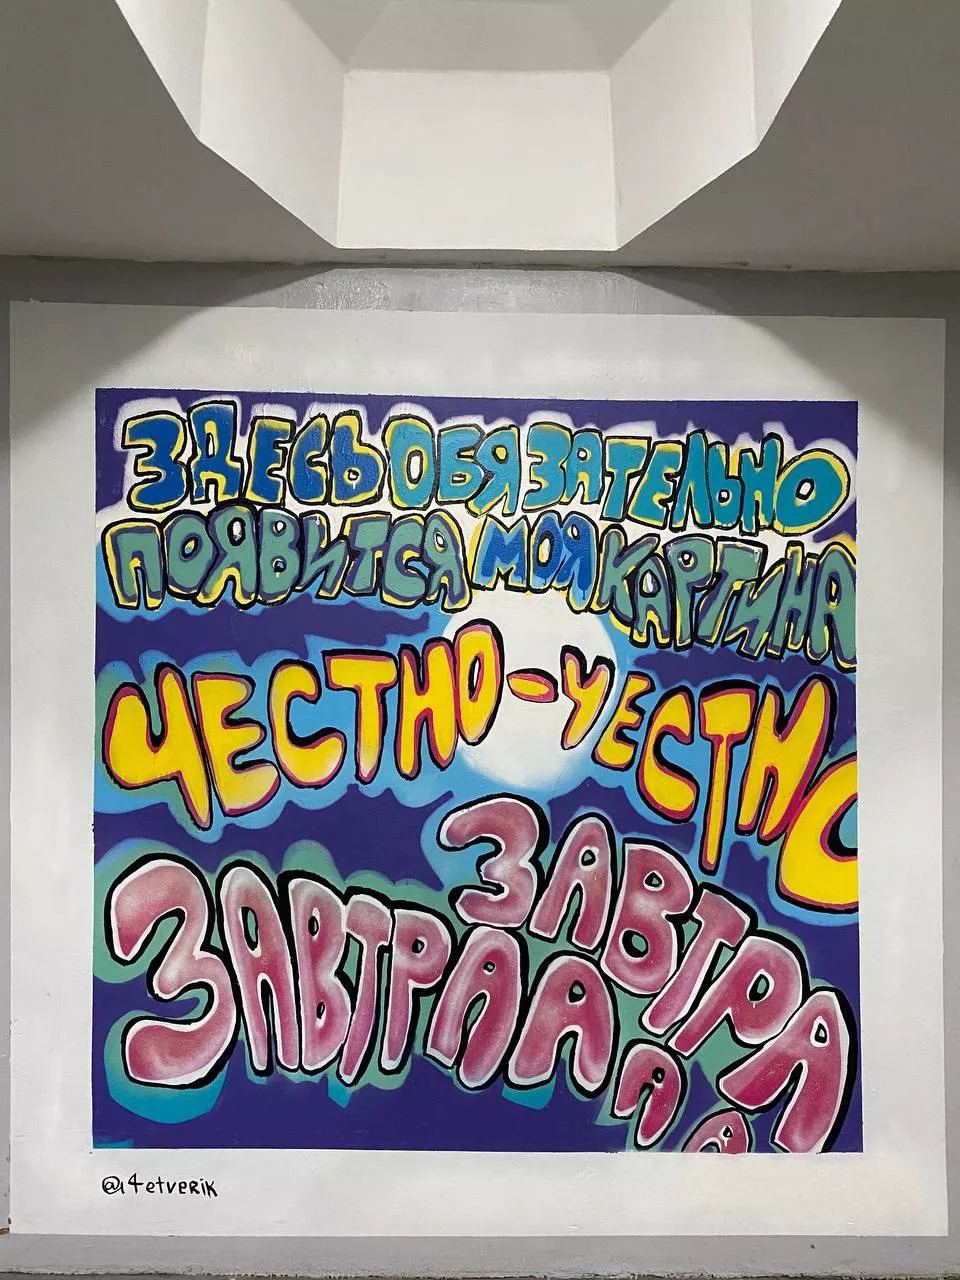 ЗДЕСЬ ОБЯЗАТЕЛЬНО
ПОЯВИТСЯ МОЯ КАРТИНА
ЧЕСТНО-ЧЕСТНО
ЗАВТРА
ЗАВТРААА А
@14etveRIK